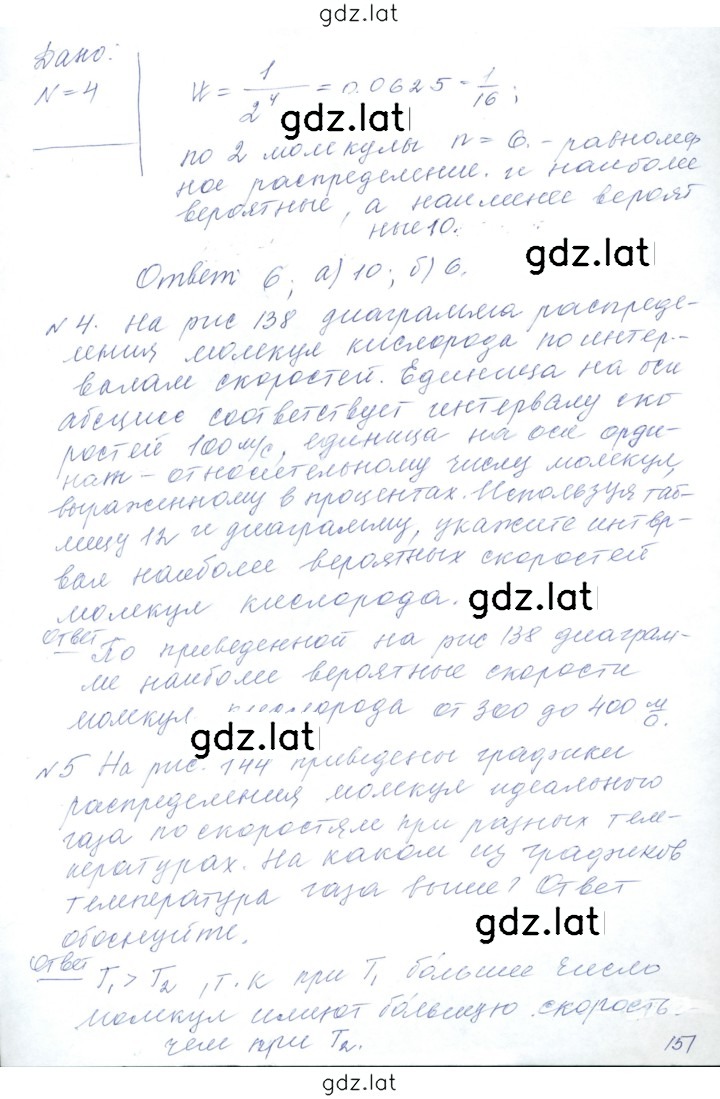 gdz.lat
Дано:
N = 4
W = 1/2^4 = 0.0625 = 1/16;
gdz.lat
по 2 молекулы n = 6. - равномер
ное распределение. и наиболее
вероятные, а наименее вероят
ные 10.
gdz.lat
Ответ: 6; а) 10; б) 6.
№ 4. На рис 138 диаграмма распреде-
ления молекул кислорода по интер-
валам скоростей. Единица на оси
абсцисс соответствует интервалу ско
ростей 100 м/с, единица на оси орди-
нат - относительному числу молекул,
выраженному в процентах. Используя таб-
лицу 12 и диаграмму, укажите интер-
вал наиболее вероятных скоростей
молекул кислорода.
gdz.lat
Ответ По приведенной на рис 138 диаграм-
ме наиболее вероятные скорости
молекул кислорода от 300 до 400 м/с.
gdz.lat
№ 5 На рис. 144 приведены графики
распределения молекул идеального
газа по скоростям при разных тем-
пературах. На каком из графиков
температура газа выше? Ответ
обоснуйте.
gdz.lat
Ответ T₁ > T₂, т.к при T₁ бо́льшее число
молекул имеют бо́льшую скорость
чем при T₂.
151
gdz.lat